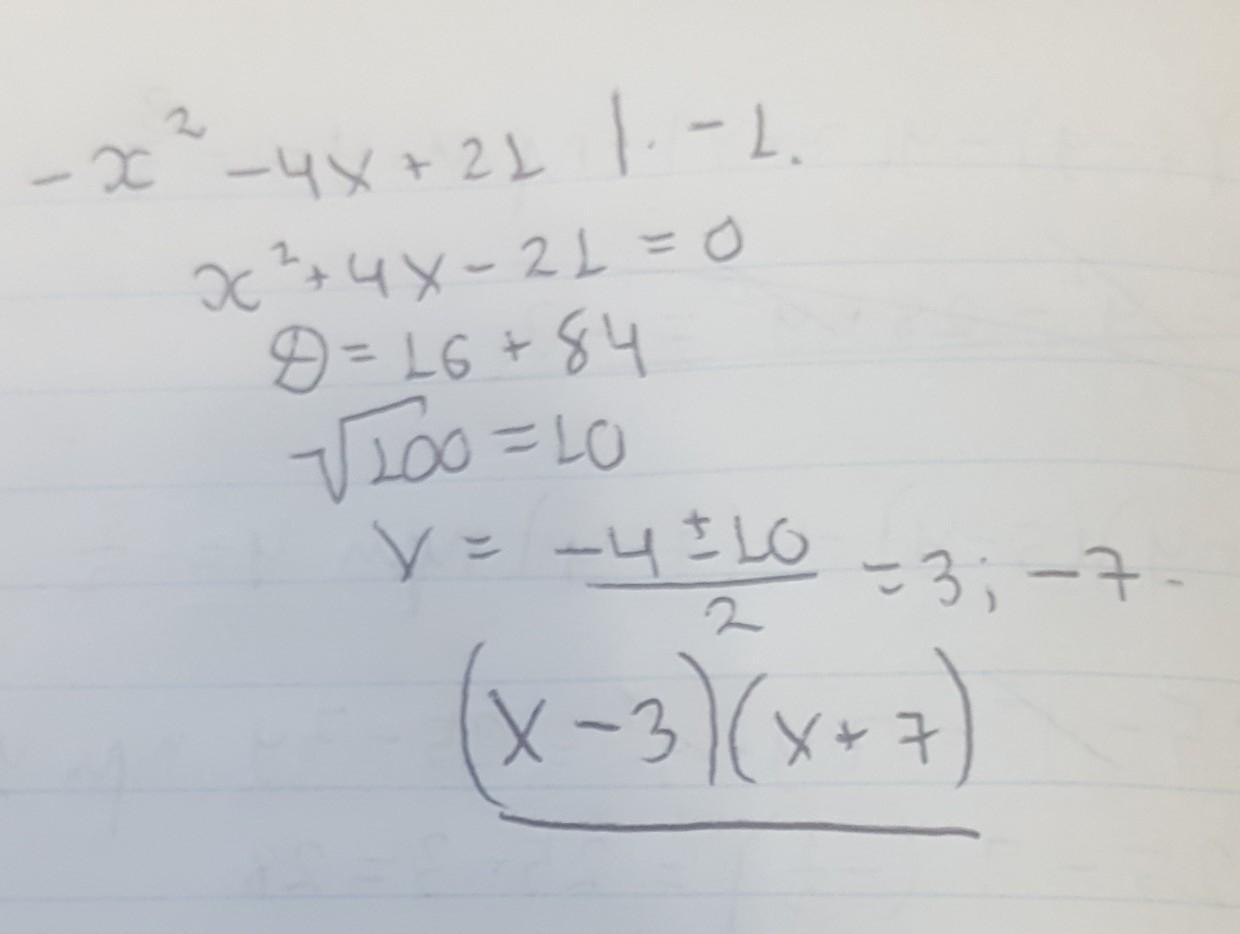 -x² -4x + 21 |. -1.
x² + 4x - 21 = 0
D = 16 + 84
√100 = 10
x = (-4 ± 10)/2 = 3; -7.
(x - 3)(x + 7)